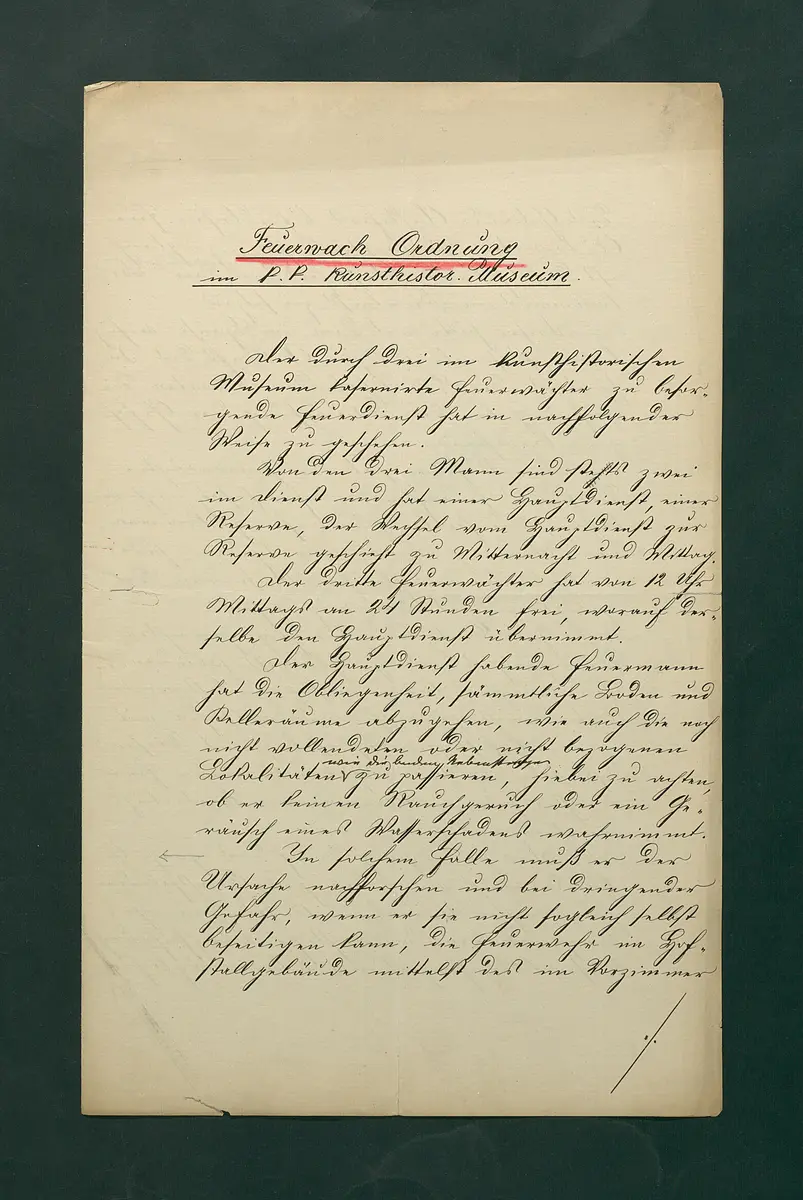 Feuerwach Ordnung
im k. k. kunsthistor. Museum.
Der durch drei im kunsthistorischen
Museum kasernirte Feuerwächter zu besor-
gende Feuerdienst hat in nachfolgender
Weise zu geschehen.
Von den drei Mann sind stehts zwei
im Dienst und hat einer Hauptdienst, einer
Reserve, der Wechsel vom Hauptdienst zur
Reserve geschieht zu Mitternacht und Mittag.
Der dritte Feuerwächter hat von 12 Uhr
Mittags an 24 Stunden frei, worauf der-
selbe den Hauptdienst übernimmt.
Der Hauptdienst habende Feuermann
hat die Obliegenheit, sämmtliche Boden und
Kellerräume abzugehen, wie auch die noch
nicht vollendeten oder nicht bezogenen
Lokalitäten zu passieren, hiebei zu achten,
ob er keinen Rauchgeruch oder ein Ge-
räusch eines Wasserschadens wahrnimmt.
In solchem Falle muß er der
Ursache nachforschen und bei dringender
Gefahr, wenn er sie nicht sogleich selbst
beseitigen kann, die Feuerwehr im Hof-
stallgebäude mittelst des im Vorzimmer
./.